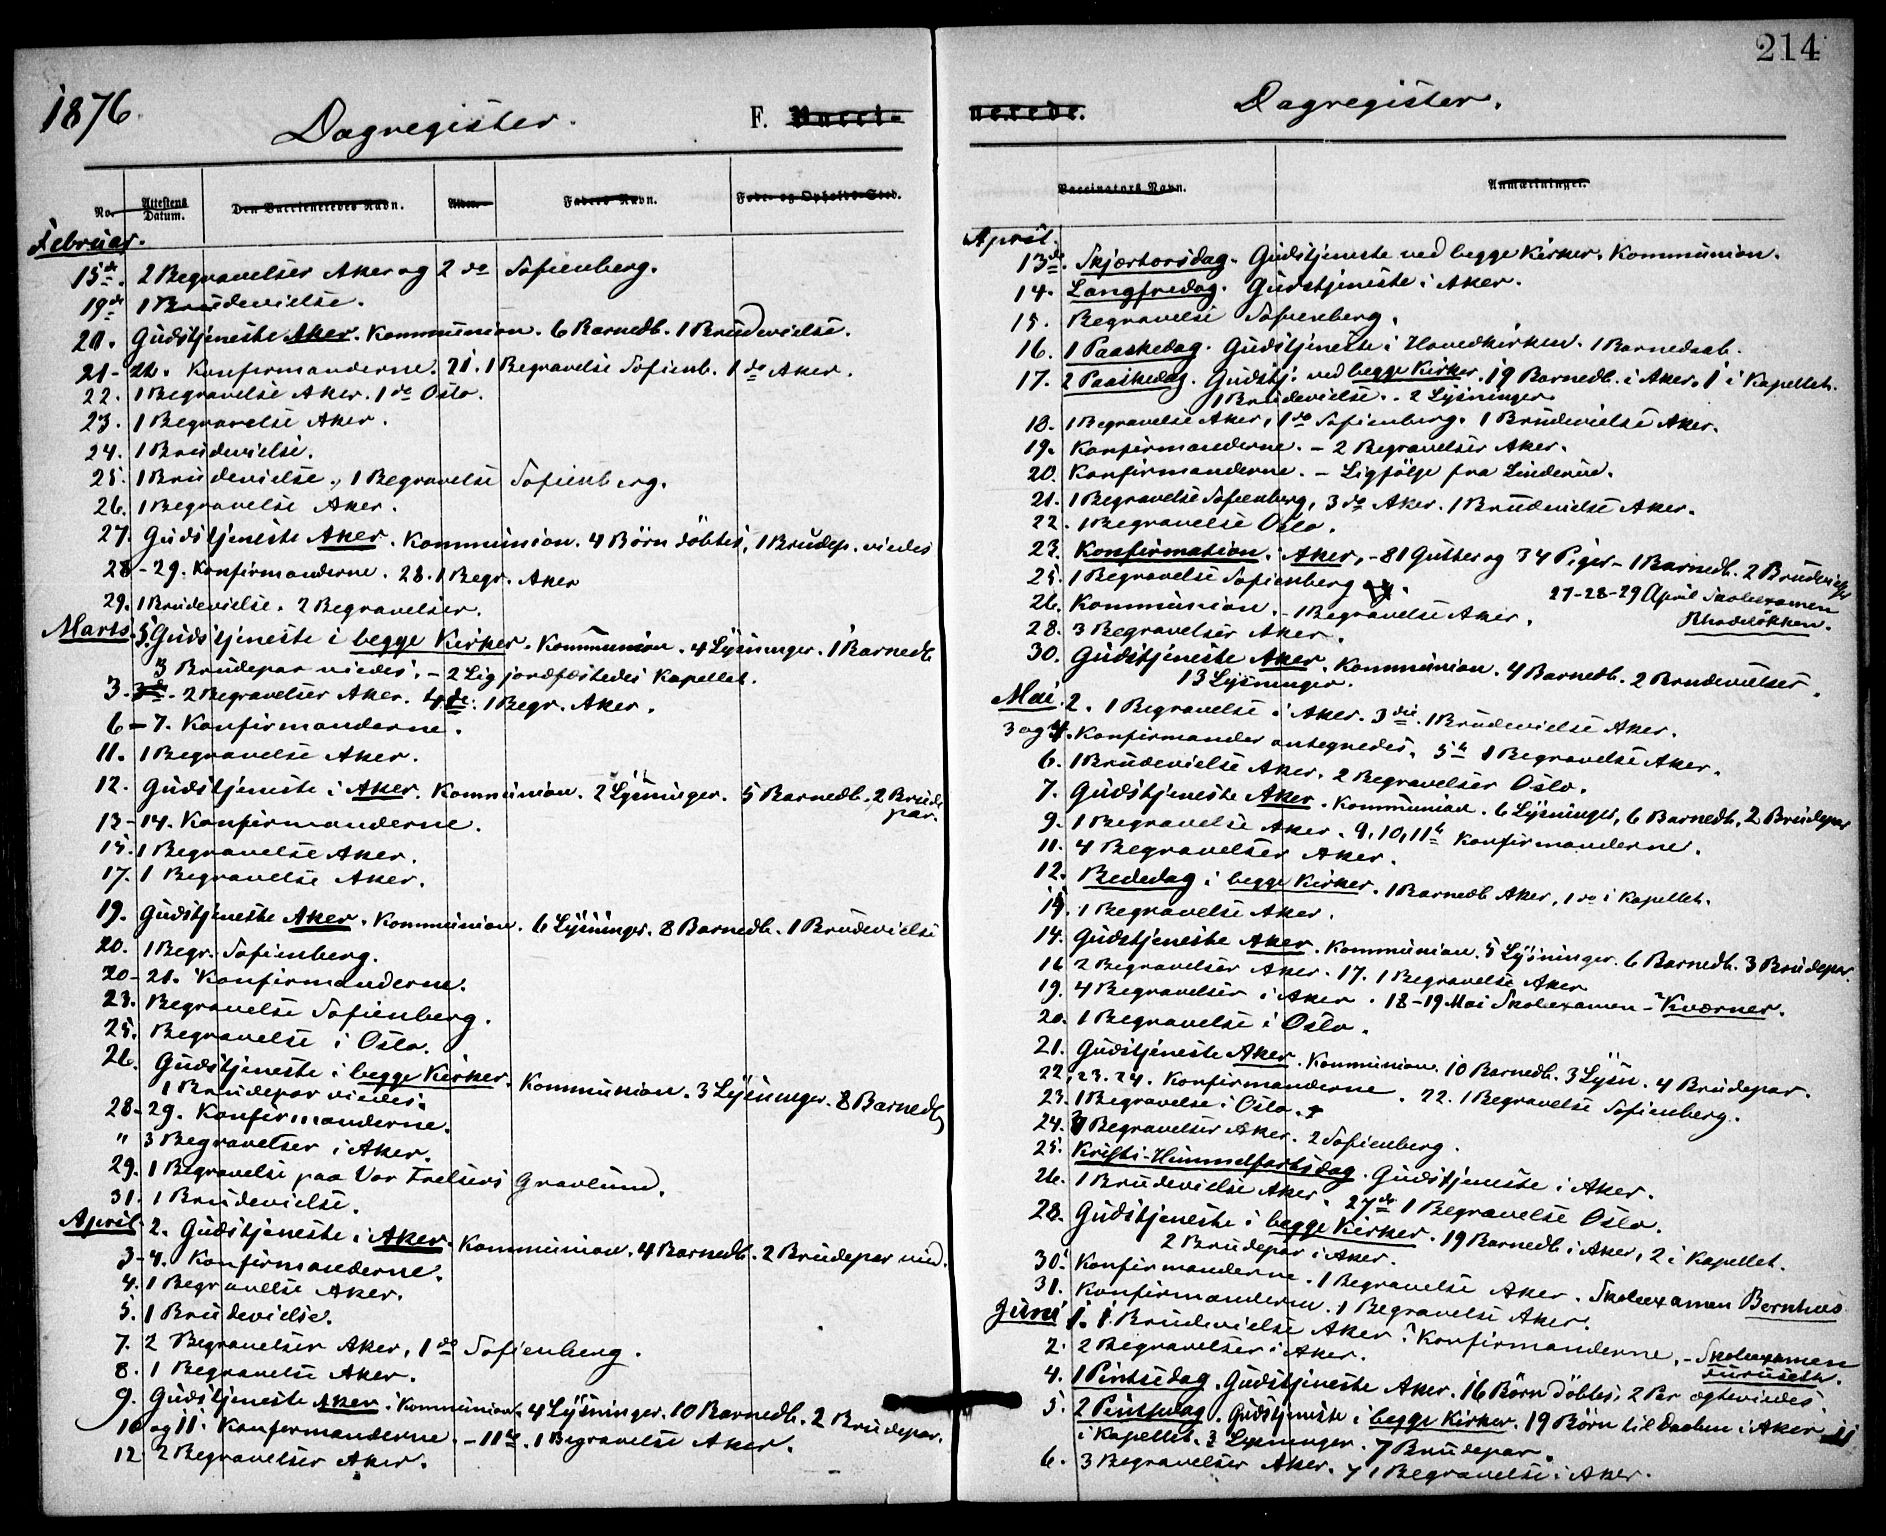 214
1876.
Dagregister.
F. Vacci-
No.
Attestens Datum.
Den Vaccineredes Navn.
Alder.
Faders Navn.
Føde- og Opholds-Sted.
Februar.
15de. 2 Begravelser Aker og 2 do Sofienberg.
19de 1 Brudevielse.
20. Gudstjeneste Aker. Kommunion. 6 Barnedb. 1 Brudevielse.
21-22. Konfirmanderne. 21. 1 Begravelse Sofienb. 1 do Aker.
22. 1 Begravelse Aker. 1 do Oslo.
23. 1 Begravelse Aker.
24. 1 Brudevielse.
25. 1 Brudevielse, 1 Begravelse Sofienberg.
26. 1 Begravelse Aker.
27. Gudstjeneste Aker. Kommunion. 4 Börn döbtes, 1 Brudep. viedes
28-29. Konfirmanderne. 28. 1 Begr. Aker
29. 1 Brudevielse. 2 Begravelser.
Marts. 5. Gudstjeneste i begge Kirker. Kommunion. 4 Lysninger. 1 Barnedb
3 Brudepar viedes. - 2 Lig jordfæstedes Kapellet.
3. 2 Begravelser Aker. 4de. 1 Begr. Aker.
6-7. Konfirmanderne.
11. 1 Begravelse Aker.
12. Gudstjeneste i Aker. Kommunion. 2 Lysninger. 5 Barnedb. 2 Brudepar.
13-14. Konfirmanderne.
15. 1 Begravelse Aker.
17. 1 Begravelse Aker.
19. Gudstjeneste Aker. Kommunion. 6 Lysninger. 8 Barnedb. 1 Brudevielse
20. 1 Begr. Sofienberg.
20-21. Konfirmanderne.
23. Begravelse Sofienberg.
25. Begravelse i Oslo.
26. Gudstjeneste i begge Kirker. Kommunion. 3 Lysninger. 8 Barnedb
1 Brudepar viedes.
28-29. Konfirmanderne.
" 3 Begravelser i Aker.
29. 1 Begravelse paa Vor Frelsers Gravlund.
31. 1 Brudevielse.
April. 2. Gudstjeneste i Aker. Kommunion. 4 Barnedb. 2 Brudepar vied.
3-4. Konfirmanderne.
4. 1 Begravelse Aker.
5. 1 Brudevielse.
7. 2 Begravelser Aker, 1 do Sofienberg.
8. 1 Begravelse Aker.
9. Gudstjeneste Aker. Kommunion. 4 Lysninger. 10 Barnedb. 2 Brudepar.
10 og 11. Konfirmanderne. - 11te. 1 Begravelse Aker.
12 2 Begravelser Aker.
nerede.
Dagregister.
Vaccinators Navn.
Anmærkninger.
April.
13de. Skjærtorsdag. Gudstjeneste ved begge Kirker. Kommunion.
14. Langfredag. Gudstjeneste i Aker.
15. Begravelse Sofienberg.
16. 1 Paaskedag. Gudstjeneste i Hovedkirken. 1 Barnedaab.
17. 2 Paaskedag. Gudstj. ved begge Kirker. 19 Barnedb. i Aker. 1 i Kapellet.
1 Brudevielse. - 2 Lysninger.
18. 1 Begravelse Aker, 1 do Sofienberg. 1 Brudevielse Aker.
19. Konfirmanderne. - 2 Begravelser Aker.
20. Konfirmanderne. - Ligfölge fra Linderud.
21. 1 Begravelse Sofienberg, 3 do Aker. 1 Brudevielse Aker.
22. 1 Begravelse Oslo.
23. Konfirmation. Aker, - 81 Gutter og 34 Piger - 1 Barnedb. 2 Brudevielser
25. 1 Begravelse Sofienberg
27-28-29 April Skolexamen
26. Kommunion. - 1 Begravelse Aker.
Rhodelökken.
28. 3 Begravelser Aker.
30. Gudstjeneste Aker. Kommunion. 4 Barnedb. 2 Brudevielser.
13 Lysninger.
Mai. 2. 1 Begravelse i Aker. 3die. 1 Brudevielse Aker.
3 og 4. Konfirmander antegnedes. 5te 1 Begravelse Aker.
6. 1 Brudevielse Aker. 2 Begravelser Oslo.
7. Gudstjeneste Aker. Kommunion. 6 Lysninger, 6 Barnedb, 2 Brudepar
9. 1 Begravelse Aker. 9, 10, 11te Konfirmanderne.
11. 4 Begravelser Aker.
12. Bededag i begge Kirker. 1 Barnedb Aker, 1 do i Kapellet.
1 Begravelse Aker.
14. Gudstjeneste Aker. Kommunion. 5 Lysninger. 6 Barnedb. 3 Brudepar.
16 2 Begravelser Aker. 17. 1 Begravelse Aker
19. 4 Begravelser i Aker. 18-19 Mai Skolexamen - Kværner.
20. 1 Begravelse i Oslo.
21. Gudstjeneste Aker. Kommunion. 10 Barnedb. 3 Lysn. 4 Brudepar.
22, 23. 24. Konfirmanderne. 22. 1 Begravelse Sofienberg.
23. 1 Begravelse i Oslo.
24. Begravelser Aker. 2 Sofienberg.
25. Kristi-Himmelfartsdag. Gudstjeneste i Aker.
26. 1 Brudevielse Aker. 27de 1 Begravelse Oslo.
28. Gudstjeneste i begge Kirker. 19 Barnedb i Aker, 2 i Kapellet.
2 Brudepar i Aker.
30. Konfirmanderne. 1 Begravelse Aker. Skolexamen Bernhus
31. Konfirmanderne. 1 Begravelse Aker.
Juni 1. 1 Brudevielse Aker. Konfirmanderne. - Skolexamen
Furuseth.
2. 2 Begravelser i Aker.
4. 1 Pintsedag. Gudstjeneste Aker. 16 Börn döbtes. 2 Par ægteviedes.
5. 2 Pintsedag. Gudstjeneste i begge Kirker. 19 Börn til Daaben i Aker
i Kapellet. 3 Lysninger. 7 Brudepar.
6. 3 Begravelser Aker. 7 1 Begravelse i Aker.